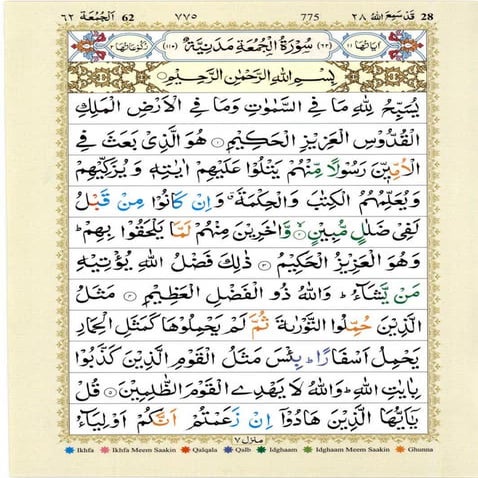 ٦٢ الجمعة 62 ٧٧٥ 775 قد سمع الله ٢٨ 28
سُوْرَةُ الْجُمُعَةِ مَدَنِيَّةٌ
بِسْمِ اللهِ الرَّحْمٰنِ الرَّحِيْمِ
يُسَبِّحُ لِلّٰهِ مَا فِي السَّمٰوٰتِ وَمَا فِي الْاَرْضِ الْمَلِكِ
الْقُدُّوْسِ الْعَزِيْزِ الْحَكِيْمِ ۝ هُوَ الَّذِيْ بَعَثَ فِي
الْاُمِّيّٖنَ رَسُوْلًا مِّنْهُمْ يَتْلُوْا عَلَيْهِمْ اٰيٰتِهٖ وَيُزَكِّيْهِمْ
وَيُعَلِّمُهُمُ الْكِتٰبَ وَالْحِكْمَةَ ۗ وَاِنْ كَانُوْا مِنْ قَبْلُ
لَفِيْ ضَلٰلٍ مُّبِيْنٍ ۝ وَّاٰخَرِيْنَ مِنْهُمْ لَمَّا يَلْحَقُوْا بِهِمْ ؕ
وَهُوَ الْعَزِيْزُ الْحَكِيْمُ ۝ ذٰلِكَ فَضْلُ اللهِ يُؤْتِيْهِ
مَنْ يَّشَآءُ ؕ وَاللهُ ذُو الْفَضْلِ الْعَظِيْمِ ۝ مَثَلُ
الَّذِيْنَ حُمِّلُوا التَّوْرٰىةَ ثُمَّ لَمْ يَحْمِلُوْهَا كَمَثَلِ الْحِمَارِ
يَحْمِلُ اَسْفَارًا ؕ بِئْسَ مَثَلُ الْقَوْمِ الَّذِيْنَ كَذَّبُوْا
بِاٰيٰتِ اللهِ ؕ وَاللهُ لَا يَهْدِي الْقَوْمَ الظّٰلِمِيْنَ ۝ قُلْ
يٰٓاَيُّهَا الَّذِيْنَ هَادُوْٓا اِنْ زَعَمْتُمْ اَنَّكُمْ اَوْلِيَآءُ
منزل ٧
Ikhfa Ikhfa Meem Saakin Qalqala Qalb Idghaam Idghaam Meem Saakin Ghunna